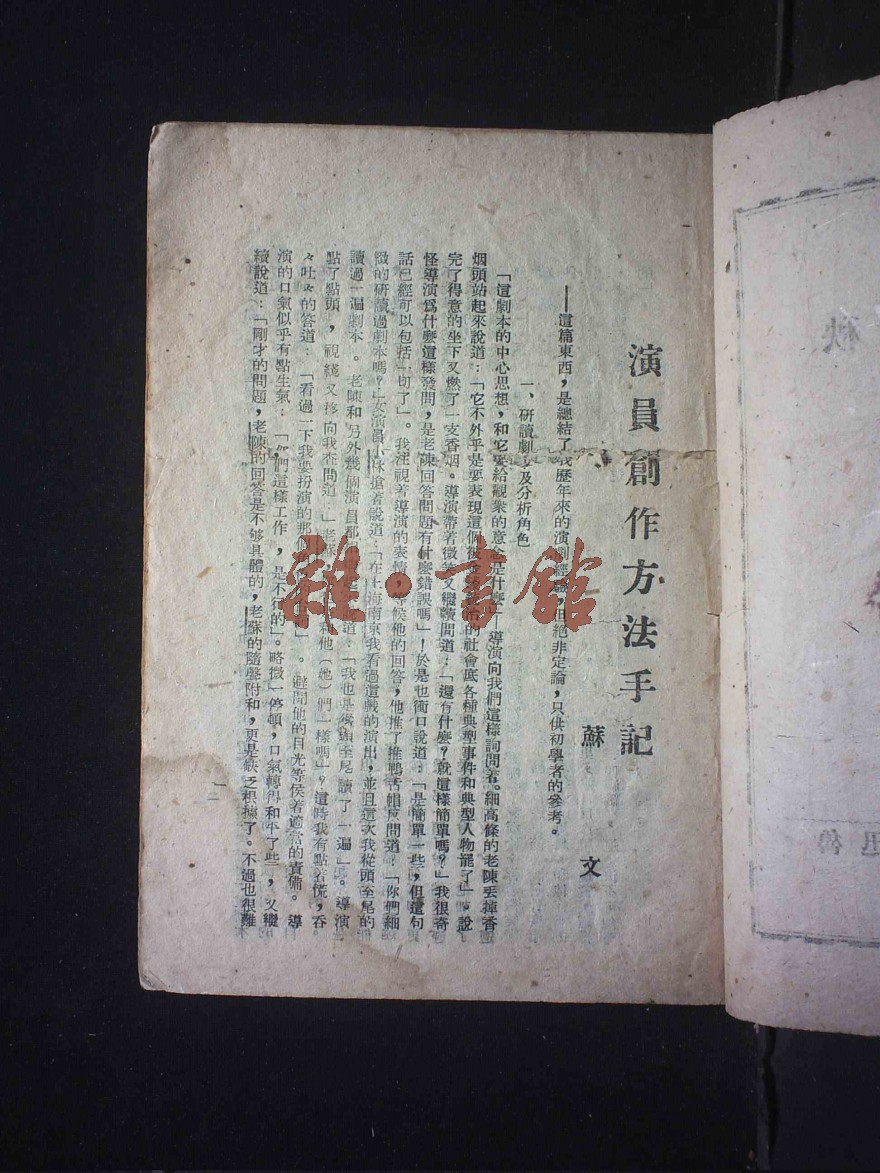 演員創作方法手記
蘇文
——這篇東西，是總結了我歷年來的演劇經驗，但絕非定論，只供初學者的參考。
一、研讀劇本及分析角色
「這劇本的中心思想，和它要給觀衆的意念是什麼」——導演向我們這樣詞問着。細高條的老陳丟掉香
烟頭站起來說道：「它不外乎是要表現這個被金 的社會底各種典型事件和典型人物罷了」。說
完了得意的坐下又燃了一支香烟。導演帶着微笑又繼續問道：「還有什麼？就這樣簡單嗎？」我很奇
怪導演爲什麼這樣發問，是老陳回答問題有什麼錯誤嗎」！於是也衝口說道：「是簡單一些，但這句
話已經可以包括一切了」。我注視着導演的表情，等候他的回答，他推了推鴨舌帽反問道：「你們細
緻的研讀過劇本嗎？」女演員小林搶着說道：「在上海南京我看過這戲的演出，並且這次我從頭至尾的
讀過一遍劇本。老陳和另外幾個演員都 道：「我也是從頭至尾讀了一遍」。導演
點了點頭，視綫又移向我查問道：」老蘇 和他（她）們一樣嗎」？這時我有點着慌，吞
々吐々的答道：「看過一下我要扮演的那個角 」。避開他的目光等侯着適當的責備。導
演的口氣似乎有點生氣：「你們這樣工作，是不行的」。略微一停頓，口氣轉得和平了些，又繼
續說道：「剛才的問題，老陳的回答是不够具體的，老蘇的隨聲附和，更是缺乏根據了。不過也很難
雜·書館
秋
魯迅